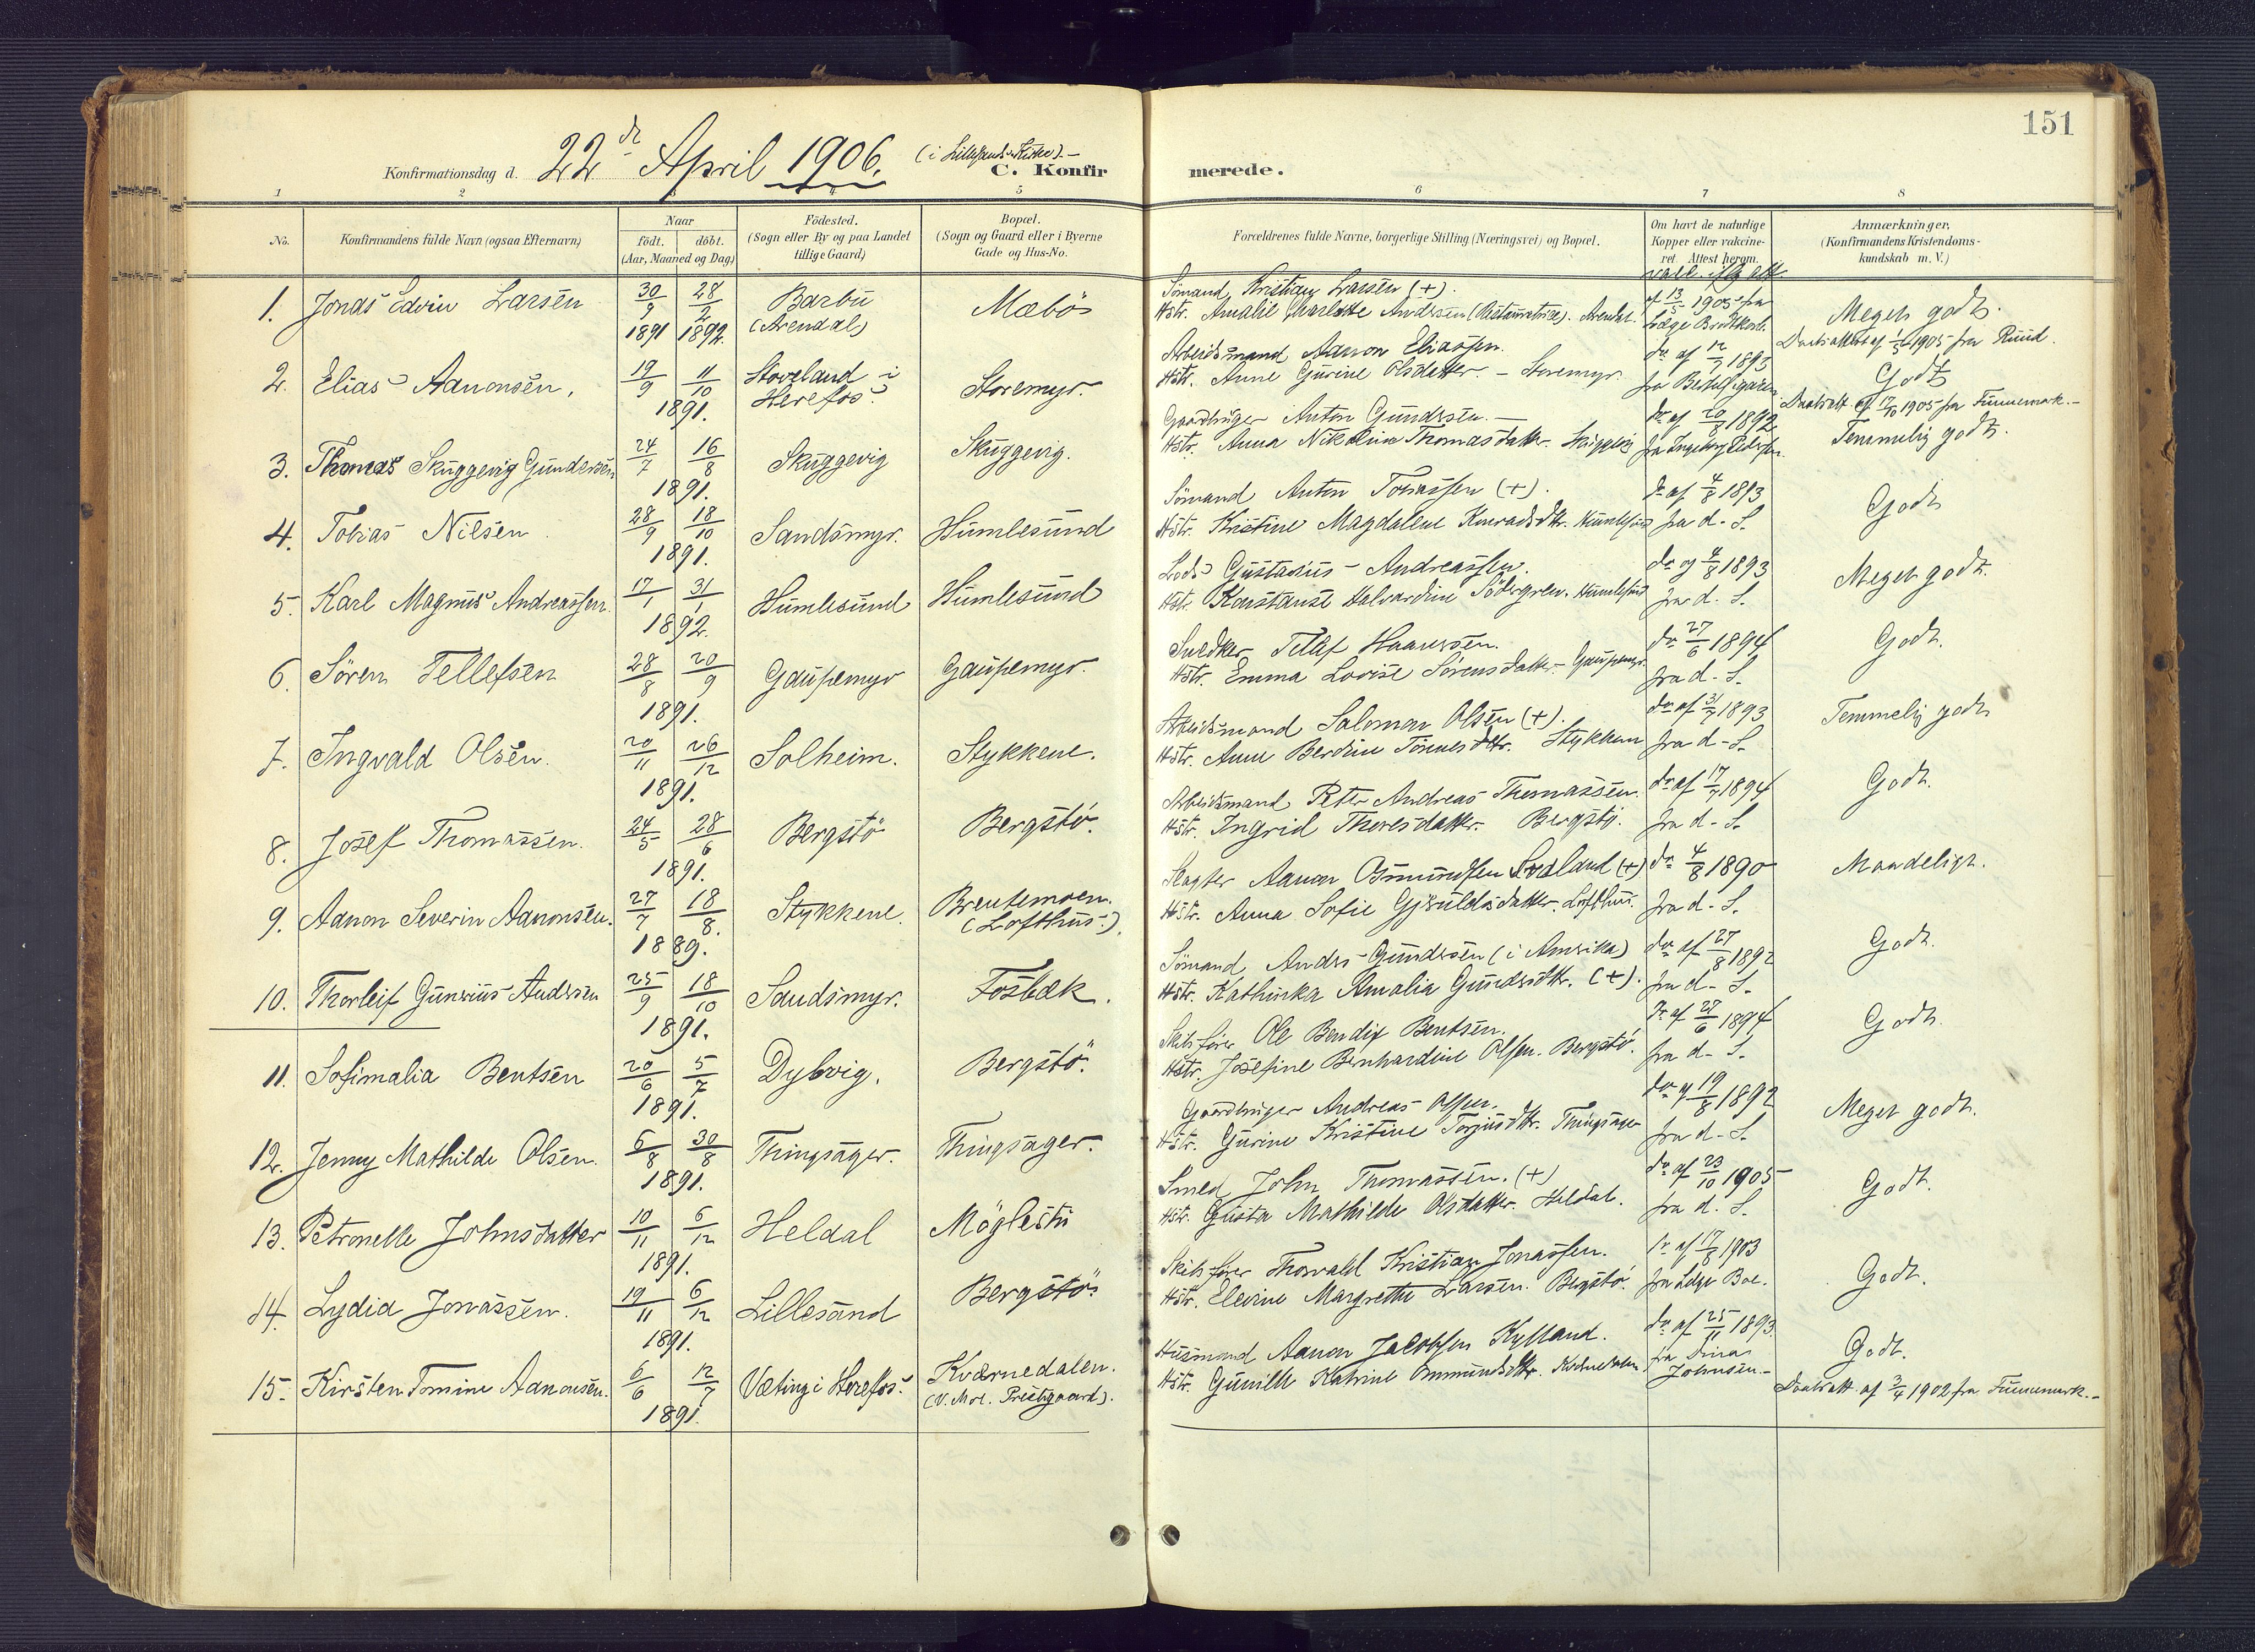 151
Konfirmationsdag d. 22de April 1906. (i Lillesands Kirke).-
C. Konfirmerede.
1 2 3 4 5 6 7 8
No.
Konfirmandens fulde Navn (ogsaa Efternavn)
Naar
födt. döbt.
(Aar, Maaned og Dag)
Födested.
(Sogn eller By og paa Landet
tillige Gaard)
Bopæl.
(Sogn og Gaard eller i Byerne
Gade og Hus-No.
Forældrenes fulde Navne, borgerlige Stilling (Næringsvei) og Bopæl.
Om havt de naturlige
Kopper eller vakcine-
ret. Attest herom.
Anmærkninger,
(Konfirmandens Kristendoms-
kundskab m. V.)
1. Jonas Edvin Larsen 30/9 1891 28/2 1892 Barbu (Arendal) Mæbö
Sömand Kristian Larsen (+).
Hstr. Amalie Charlotte Andersen Arendal.
vacc. iflg att af 13/5 1905 fra Læge Brodtkorb.
Meget godt.
2. Elias Aanonsen. 19/9 11/10 1891. Stoveland i Herefos. Storemyr.
Arbeidsmand Aanon Eliassen.
Hstr. Anne Gurine Olsdatter - Storemyr.
do af 12/7 1893
Daabsattest af 1/5 1905 fra Ruud.
Godt
3. Thomas Skuggevig Gundersen 24/7 16/8 1891. Skuggevig Skuggevig.
Gaardbruger Anton Gundersen. -
Hstr. Anna Nikoline Thomasdatter
do af 20/8 1892 fra Ingeborg Pedersen.
Daabsatt af 17/10 1905 fra Finnemark.-
Temmelig godt.
4. Tobias Nilsen. 28/9 18/10 1891. Sandsmyr. Humlesund
Sömand Anton Tobiassen (+).
Hstr. Kristine Magdalene Konradsdtr. Humlesund
do af 4/8 1893 fra d. S.
Godt
5. Karl Magnus Andreassen. 17/1 31/1 1892. Humlesund Humlesund
Lods Gustavius Andreassen.
Hstr. Konstanse Halvardine Södergren. Humlesund
do af 4/8 1893 fra d. S.
Meget godt.
6. Sören Tellefsen 28/8 20/9 1891. Gaupemyr Gaupemyr.
Snedker Tellef Haansen.
Hstr. Emma Lovise Sörensdatter. Gaupemyr.
do 27/6 1894 fra d. S.
Godt.
7. Ingvald Olsen. 20/11 26/12 1891. Solheim. Stykkene.
Arbeidsmand Salomon Olsen (+).
Hstr. Anne Berdine Tönnesdtr. Stykkene
do af 31/7 1893 fra d. S.
Temmelig godt
8. Josef Thomassen. 24/5 28/6 1891. Bergstö Bergstö.
Arbeidsmand Peter Andreas Thomassen.
Hstr. Ingrid Thoresdatter. Bergstö.
do af 17/7 1894 fra d. S.
Godt.
9. Aanon Severin Aanonsen. 27/7 18/8. 1889. Stykkene. Brentemoen. (Lofthus.).
Slagter Aanon Osmundsen Svaland (+)
Hstr. Anna Sofie Gjeruldsdatter. Lofthus.
do 4/8 1890 fra d. S.
Maadeligt.
10. Thorleif Gunerius Andersen 25/9 18/10 1891. Sandsmyr. Fosbæk.
Sömand Anders Gundersen (i Amerika)
Hstr. Kathinka Amalia Gundersdtr. (+).
do af 27/8 1892 fra d. S.
Godt.
11. Sofimalia Bentsen 20/6 5/7 1891. Dybvig. Bergstö.
Skibsförer Ole Bendix Bentsen.
Hstr. Josefine Bernhardine Olsen. Bergstö.
do af 28/6 1894 fra d. S.
Godt.
12. Jenny Mathilde Olsen. 6/8 30/8 1891. Thingsager. Thingsager.
Gaardbruger Andreas Olsen.
Hstr. Gurine Kristine Torjusdtr. Thingsager
do af 19/8 1892 fra d. S.
Meget godt.
13. Petronelle Johnsdatter 10/11 6/12 1891. Heldal Möglestu
Smed John Thomassen. (+)
Hstr. Gusta Mathilde Olsdatter. Heldal.
do af 23/10 1905 fra d. S.
Godt.
14. Lydia Jonassen. 19/11 6/12 1891. Lillesand Bergstö
Skibsförer Thorvald Kristian Jonassen.
Hstr. Elevine Margrethe Larsen. Bergstö.
do af 17/8 1903 fra Læge Boe.
Godt.
15. Kirsten Tomine Aanonsen. 6/6 12/7 1891. Væting i Herefos. Kvernedalen. (V. Mol. Prestgaard).
Husmand Aanon Jacobsen Kylland.
Hstr. Gunille Katrine Omundsdtr. Kvernedalen
do af 25/11 1893. fra Sinas Johnsen.-
Godt.
Daabsatt. af 3/4 1902 fra Finnemark.-